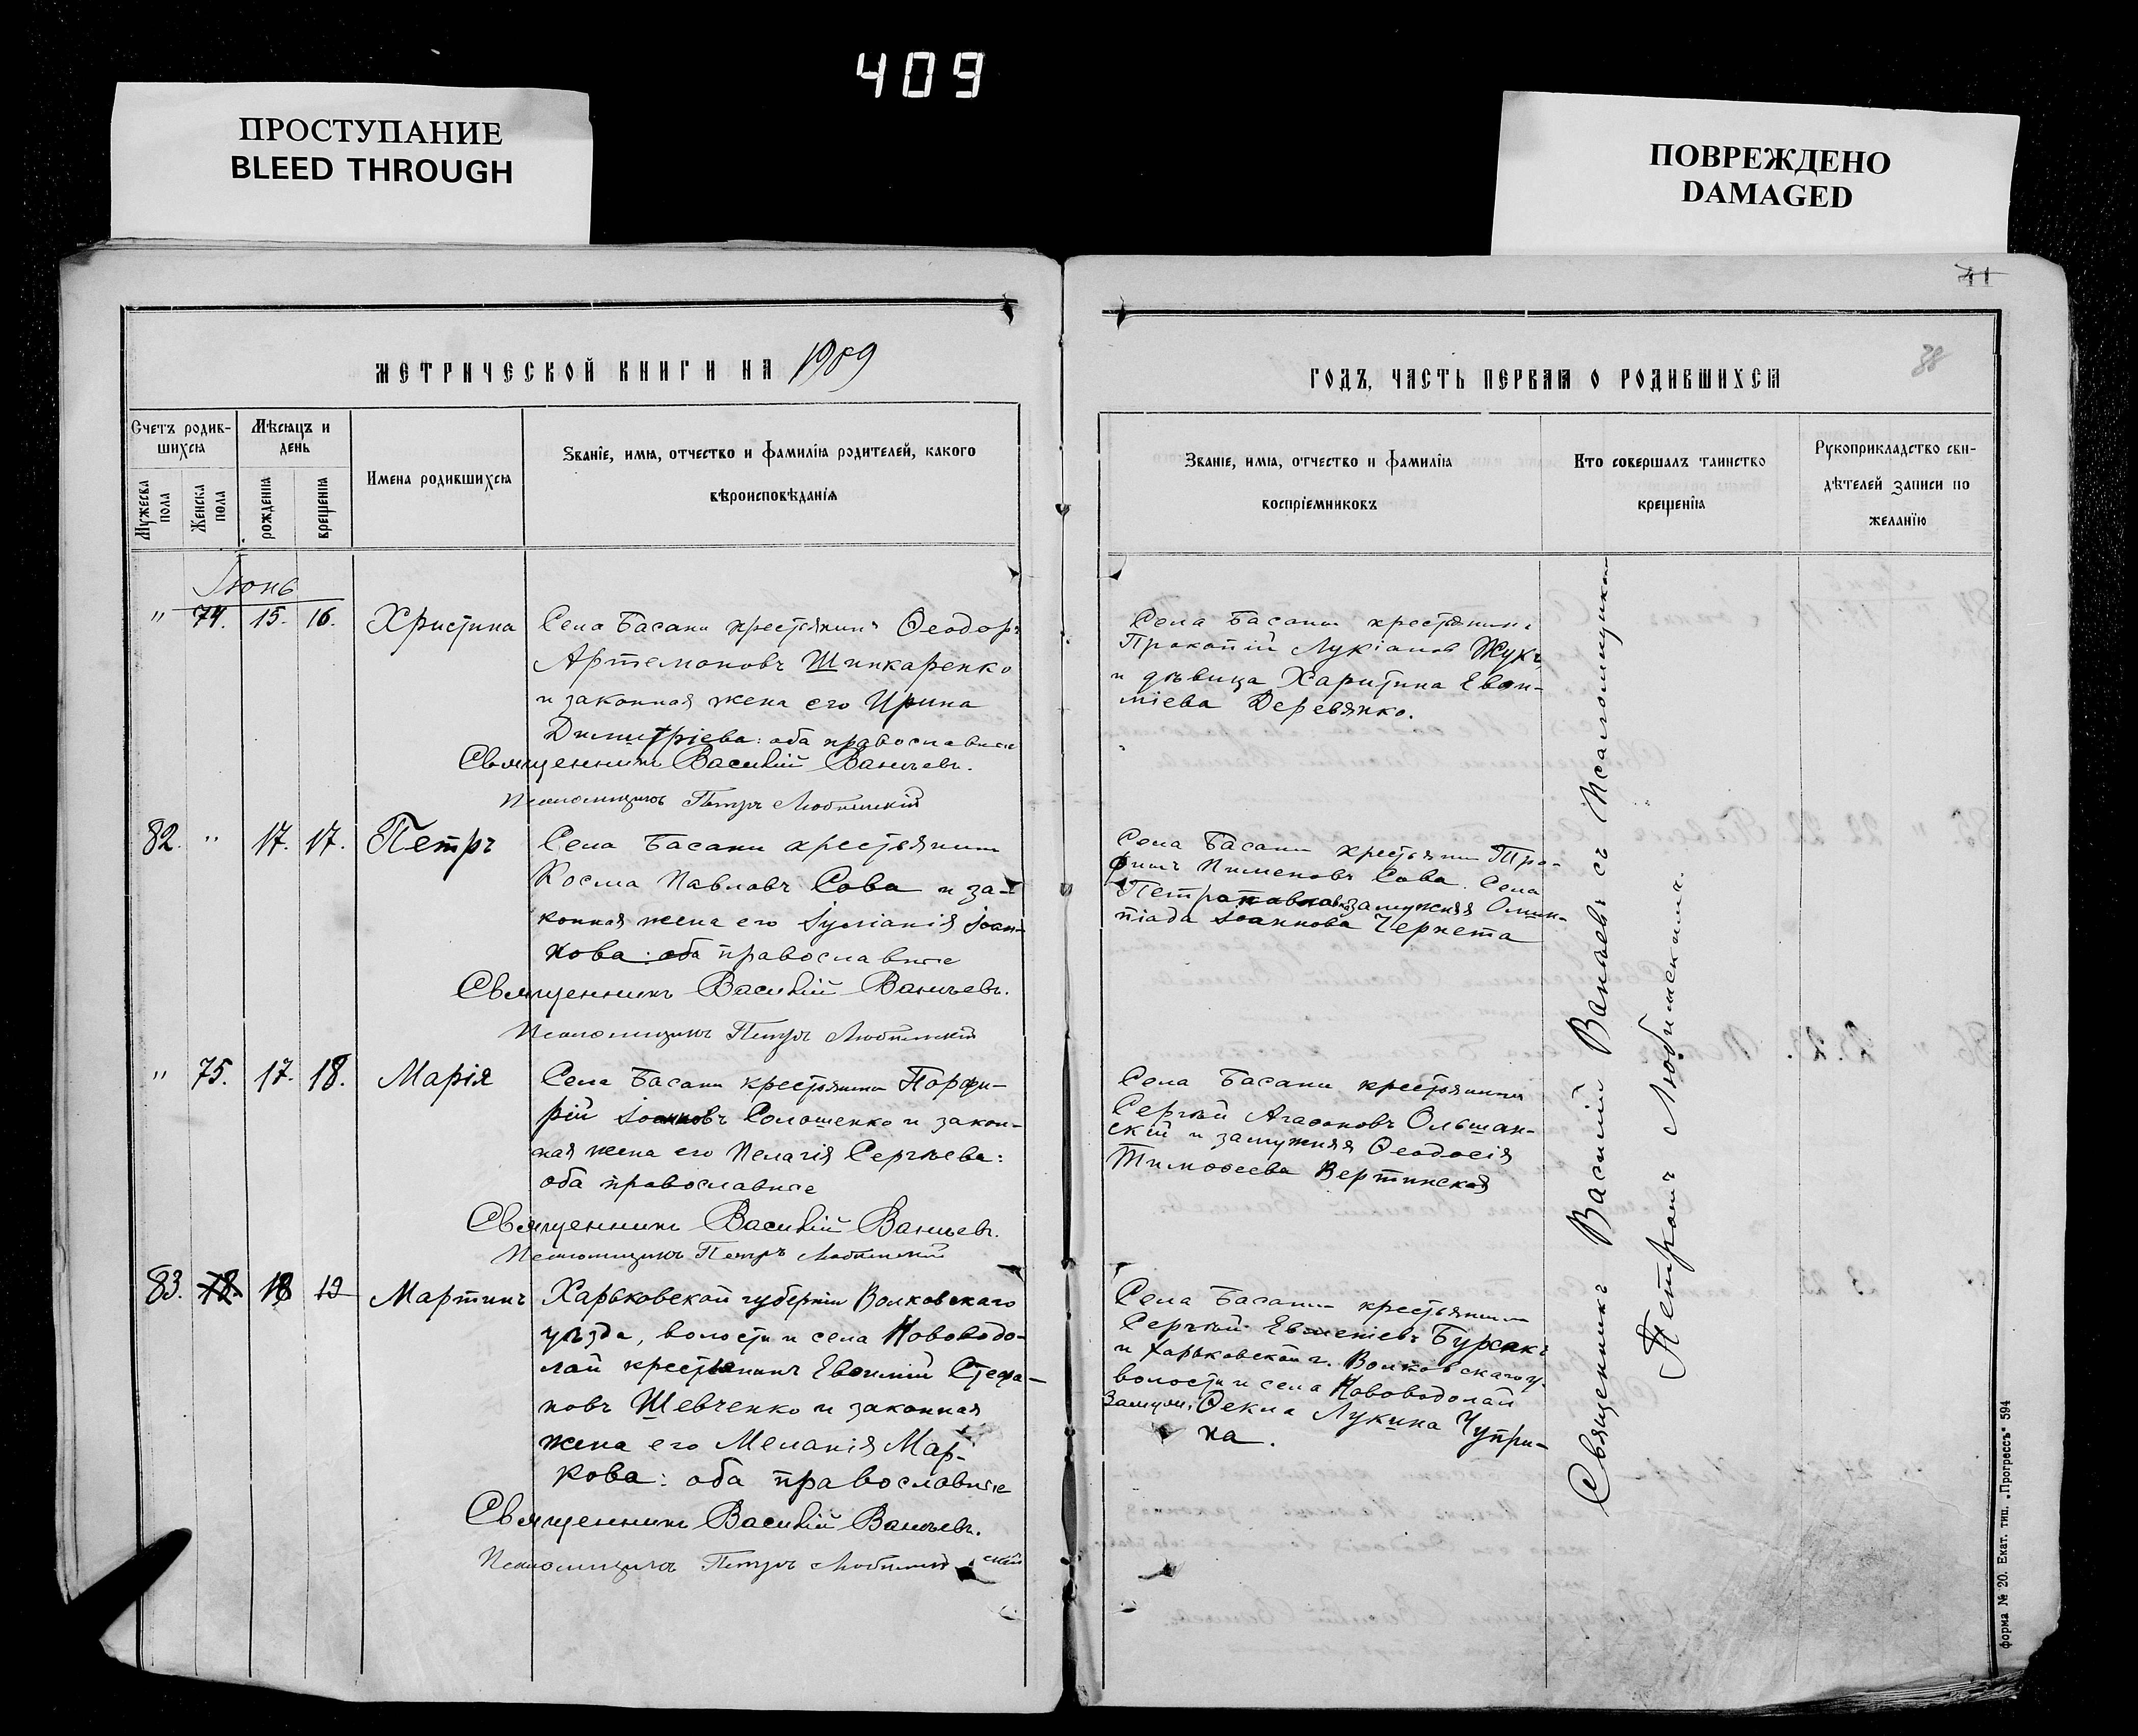 409
ПРОСТУПАНИЕ
BLEED THROUGH
ПОВРЕЖДЕНО
DAMAGED
41
38
МЕТРИЧЕСКОЙ КНИГИ НА 1909
ГОДЪ, ЧАСТЬ ПЕРВАЯ О РОДИВШИХСЯ
Счетъ родив-
шихся
Мѣсяцъ и
день
Мужеска пола
Женска пола
рожденія
крещенія
Имена родившихся
Званіе, имя, отчество и фамилія родителей, какого
вѣроисповѣданія
Званіе, имя, отчество и фамилія
воспріемниковъ
Кто совершалъ таинство
крещенія
Рукоприкладство сви-
дѣтелей записи по
желанію
Іюнь
" 74. 15. 16. Христина
Села Басани крестьянинъ Ѳеодоръ
Артемоновъ Шинкаренко
и законная жена его Ирина
Димитріева: оба православные
Священникъ Василій Ваничевъ.
Псаломщикъ Петръ Любимскій
Села Басани крестьянинъ
Прокопій Лукіановъ Жукъ
и дѣвица Харитина Евѳи-
міева Деревянко.
82. " 17. 17. Петръ
Села Басани крестьянинъ
Косма Павловъ Сова и за-
конная жена его Іуліанія Іоан-
нова: оба православные
Священникъ Василій Ваничевъ.
Псаломщикъ Петръ Любимскій
Села Басани крестьянинъ Тро-
фимъ Пименовъ Сова. Села
Петропавловки замужняя Олим-
піада Іоаннова Чернета
" 75. 17. 18. Марія
Села Басани крестьянинъ Порфи-
рій Іоанновъ Солошенко и закон-
ная жена его Пелагія Сергѣева:
оба православные
Священникъ Василій Ваничевъ.
Псаломщикъ Петръ Любимскій
Села Басани крестьянинъ
Сергѣй Агаѳоновъ Ольшан-
скій и замужняя Ѳеодосія
Тимоѳеева Вертинская
83. 78. 18 19 Мартинъ
Харьковской губерніи Волковскаго
уѣзда, волости и села Нововодо-
лаги крестьянинъ Евѳимій Стефа-
новъ Шевченко и законная
жена его Меланія Мар-
кова: оба православные
Священникъ Василій Ваничевъ.
Псаломщикъ Петръ Любимскій
Села Басани крестьянинъ
Сергѣй Евгеніевъ Бурсакъ
и Харьковской г. Волковскаго у.
волости и села Нововодолаги
замужн. Ѳекла Лукина Чупри-
на.
Священникъ Василій Ваничевъ съ Псаломщикомъ
Петромъ Любимскимъ.
форма № 20. Екат. тип. „Прогрессъ" 594